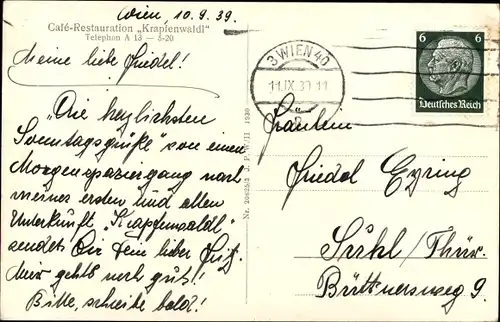 Wien, 10.9.39.
Café-Restauration „Krapfenwaldl"
Telephon A 13 — 5-20
Meine liebe Friedel!
Die herzlichsten
Sonntagsgrüße von einem
Morgenspaziergang nach
meiner ersten und alten
Unterkunft „Krapfenwaldl"
sendet Dir Dein lieber Fritz.
Mir geht's noch gut!
Bitte, schreibe bald!
Nr. 20625/3 J. P. W./II 1939
3 WIEN 40
11.IX.39.11
6 6
Deutsches Reich
Fräulein
Friedel Eyring
Suhl /Thür.
Büttnersweg 9.